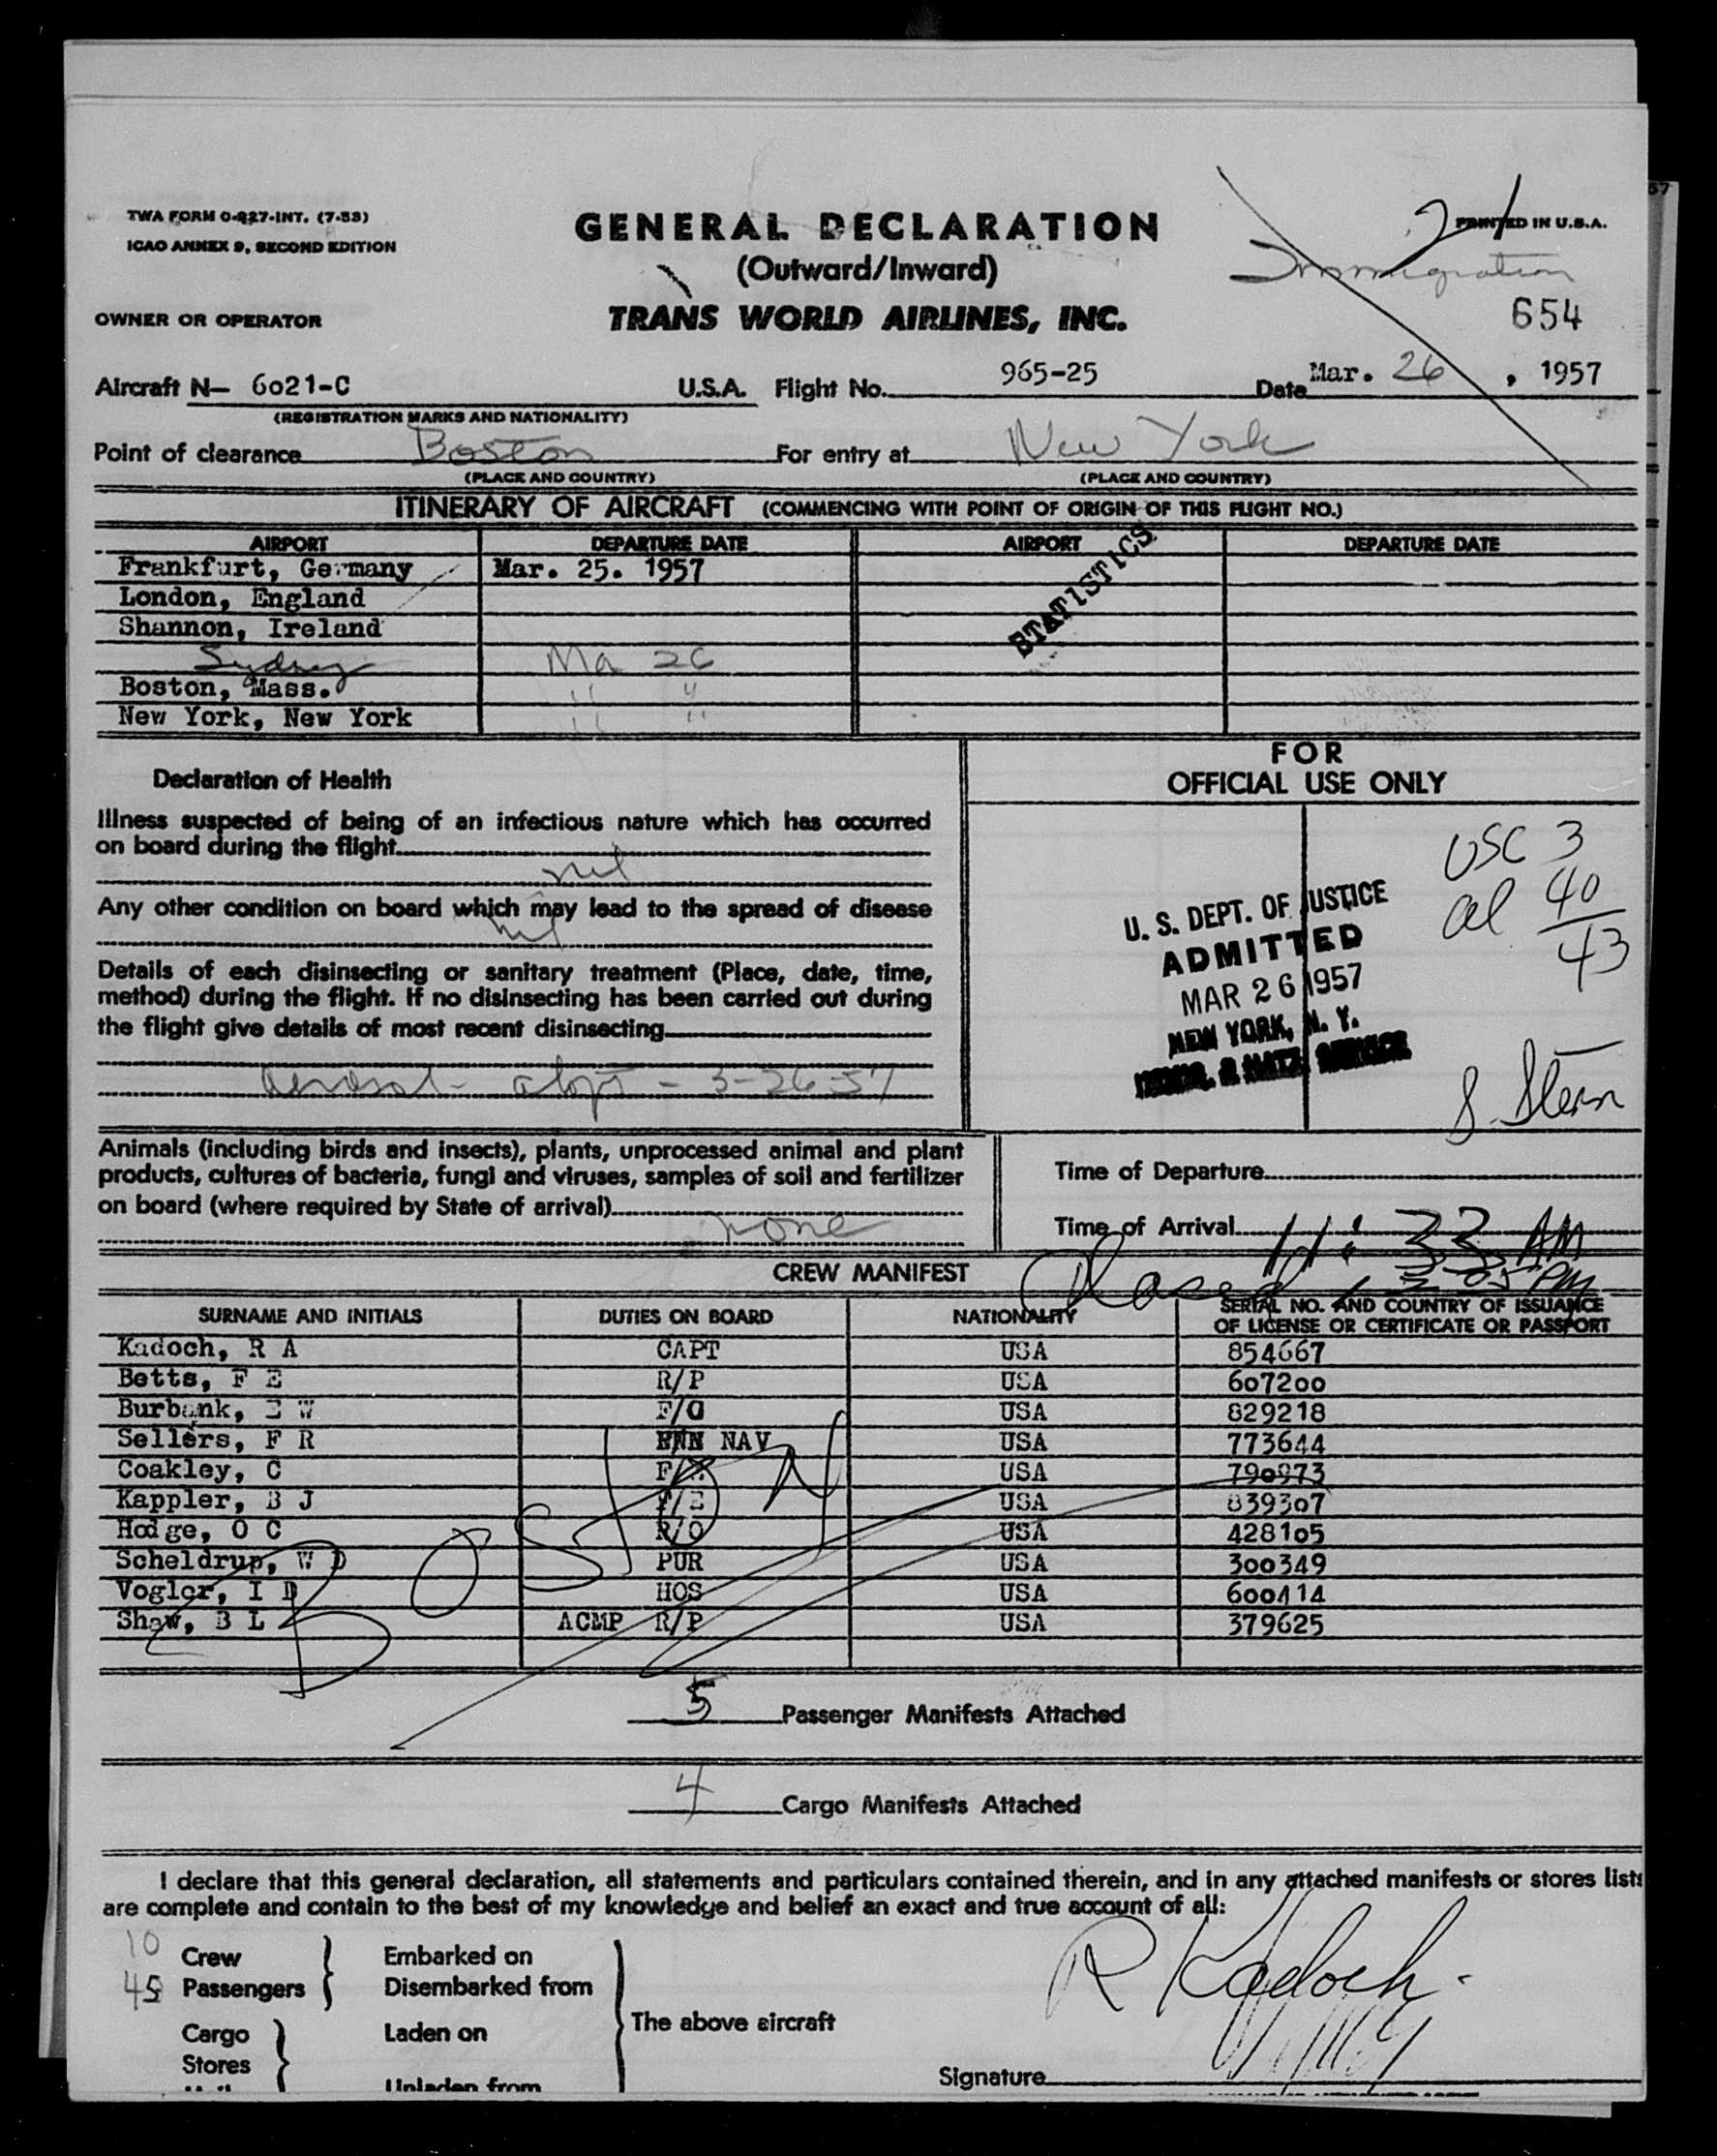 TWA FORM O-827-INT. (7-53)
ICAO ANNEX 9, SECOND EDITION
GENERAL DECLARATION
(Outward/Inward)
PRINTED IN U.S.A.
21
Immigration
OWNER OR OPERATOR
TRANS WORLD AIRLINES, INC.
654
Aircraft N— 6021-C U.S.A. Flight No. 965-25 Date Mar. 26, 1957
(REGISTRATION MARKS AND NATIONALITY)
Point of clearance Boston For entry at New York
(PLACE AND COUNTRY) (PLACE AND COUNTRY)
ITINERARY OF AIRCRAFT (COMMENCING WITH POINT OF ORIGIN OF THIS FLIGHT NO.)
AIRPORT DEPARTURE DATE AIRPORT DEPARTURE DATE
Frankfurt, Germany Mar. 25. 1957
London, England
Shannon, Ireland
STATISTICS
Sydney Ma 26
Boston, Mass. " "
New York, New York " "
Declaration of Health
Illness suspected of being of an infectious nature which has occurred
on board during the flight
nil
Any other condition on board which may lead to the spread of disease
nil
Details of each disinsecting or sanitary treatment (Place, date, time,
method) during the flight. If no disinsecting has been carried out during
the flight give details of most recent disinsecting
aerosol - - 3-26-57
FOR
OFFICIAL USE ONLY
USC 3
al 40
43
U. S. DEPT. OF JUSTICE
ADMITTED
MAR 26 1957
NEW YORK, N. Y.
IMMIG. & NATZ. SERVICE
S. Stern
Animals (including birds and insects), plants, unprocessed animal and plant
products, cultures of bacteria, fungi and viruses, samples of soil and fertilizer
on board (where required by State of arrival)
none
Time of Departure
Time of Arrival 11:33 AM
PM
CREW MANIFEST
SURNAME AND INITIALS DUTIES ON BOARD NATIONALITY SERIAL NO. AND COUNTRY OF ISSUANCE
OF LICENSE OR CERTIFICATE OR PASSPORT
Kadoch, R A CAPT USA 854667
Betts, F E R/P USA 607200
Burbank, E W F/O USA 829218
Sellers, F R NAV USA 773644
Coakley, C USA 790973
Kappler, B J F/E USA 839307
Hodge, O C R/O USA 428105
Scheldrup, W D PUR USA 300349
Vogler, I D HOS USA 600414
Shaw, B L ACMP R/P USA 379625
BOSTON
5 Passenger Manifests Attached
4 Cargo Manifests Attached
I declare that this general declaration, all statements and particulars contained therein, and in any attached manifests or stores lists
are complete and contain to the best of my knowledge and belief an exact and true account of all:
10 Crew
45 Passengers
Embarked on
Disembarked from
Cargo
Stores
Laden on
Unladen from
The above aircraft
R Kadoch.
Signature